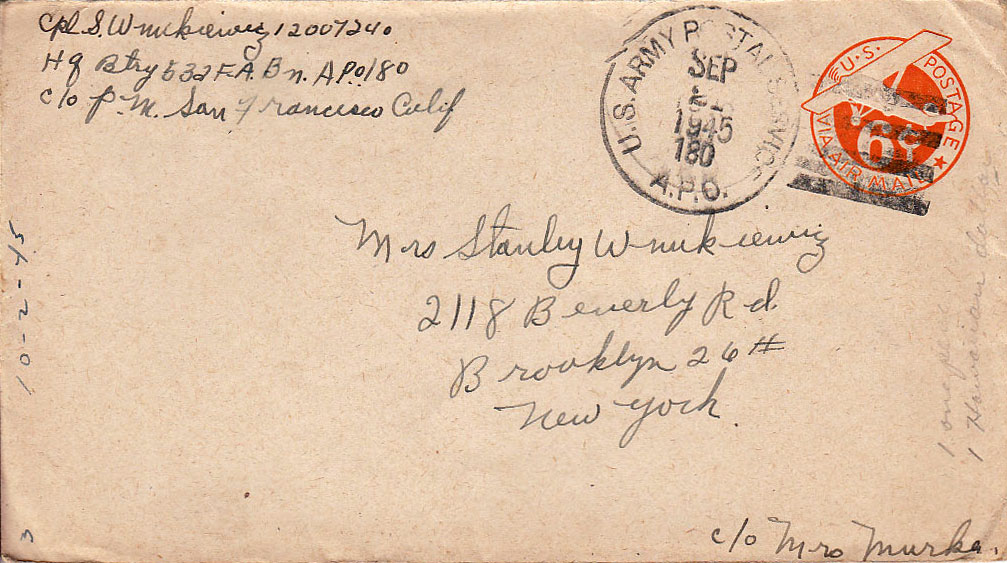 Cpl S. Wnukiewicz 12007240
Hq Btry 532 F.A. Bn. A.P.O 180
c/o P.M. San Francisco Calif
U.S. ARMY POSTAL SERVICE
SEP
1945
180
A.P.O.
U.S. POSTAGE
6¢
VIA AIR MAIL
Mrs Stanley Wnukiewicz
2118 Beverly Rd
Brooklyn 26 #
New York
c/o Mrs Murka.
10-2-45
3
1 one
1 Hawaiian dollar